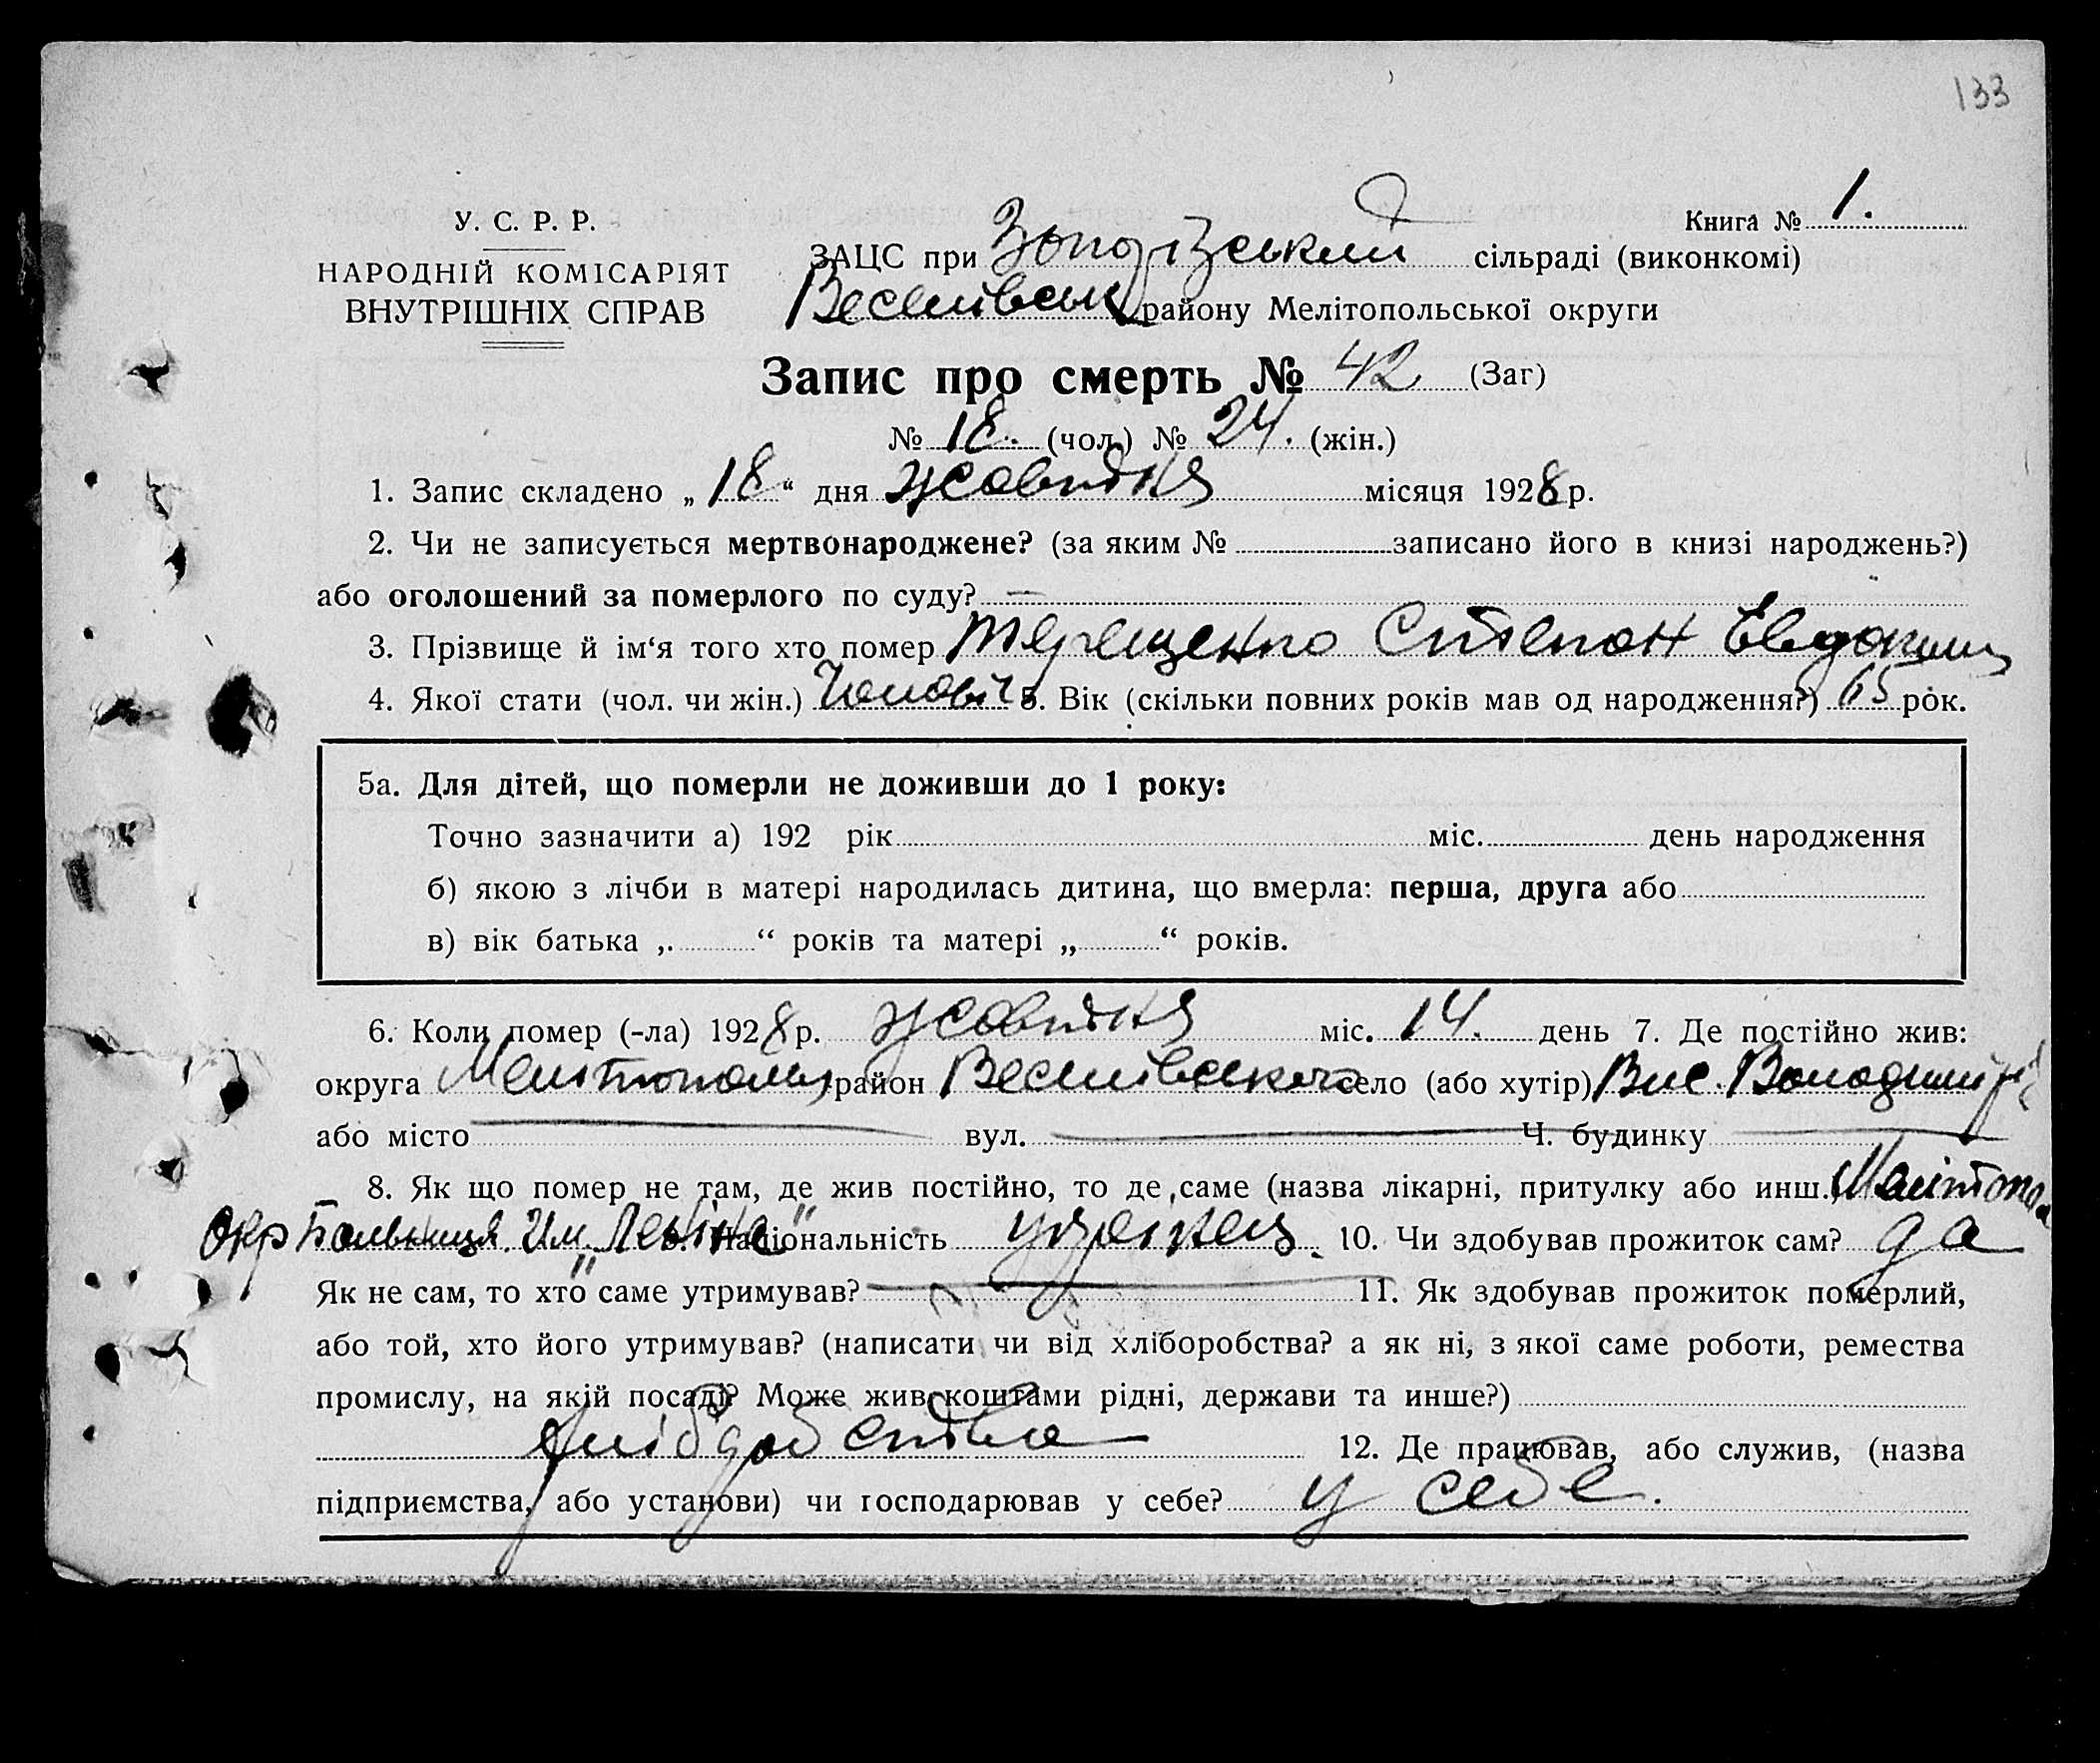 133
У. С. Р. Р.
Книга № 1.
НАРОДНІЙ КОМІСАРІЯТ
ВНУТРІШНІХ СПРАВ
ЗАЦС при сільраді (виконкомі)
Веселівськ району Мелітопольської округи
Запис про смерть № 42 (Заг)
№ 18. (чол.) № 24. (жін.)
1. Запис складено „18“ дня жовтня місяця 1928 р.
2. Чи не записується мертвонароджене? (за яким № записано його в книзі народжень?)
або оголошений за померлого по суду? —
3. Прізвище й ім‘я того хто помер Терещенко Степан
4. Якої стати (чол. чи жін.) Чоловіч 5. Вік (скільки повних років мав од народження?) 65 рок.
5а. Для дітей, що померли не доживши до 1 року:
Точно зазначити а) 192 рік міс. день народження
б) якою з лічби в матері народилась дитина, що вмерла: перша, друга або
в) вік батька „. “ років та матері „ “ років.
6. Коли помер (-ла) 1928 р. жовтня міс. 14. день 7. Де постійно жив:
округа район Веселівського село (або хутір)
або місто вул. Ч. будинку
8. Як що помер не там, де жив постійно, то де саме (назва лікарні, притулку або инш.)
Окр Больниця Им. "Леніна" 9. Національність українец. 10. Чи здобував прожиток сам? да
Як не сам, то хто саме утримував? 11. Як здобував прожиток померлий,
або той, хто його утримував? (написати чи від хліборобства? а як ні, з якої саме роботи, ремества
промислу, на якій посаді? Може жив коштами рідні, держави та инше?)
12. Де працював, або служив, (назва
підприємства, або установи) чи господарював у себе? у себе.